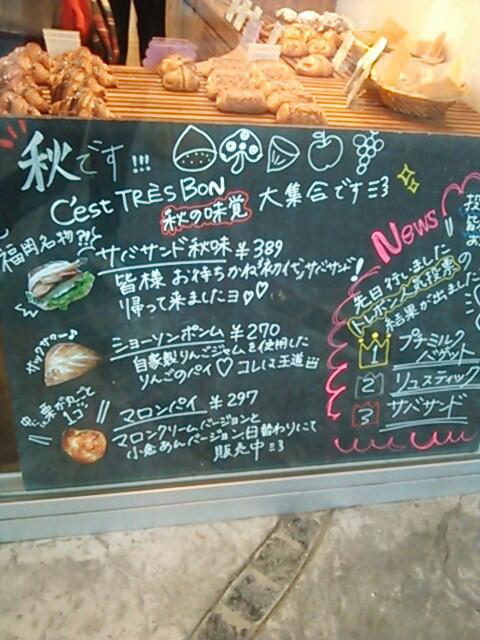 秋です!!!
C'est TRÈS BON
秋の味覚 大集合です
福岡名物?!
サバサンド秋味 ¥389
皆様 お待ちかね
サバサンド!
帰って来ましたヨ♡♡
サックサク♪
ショーソンポンム ¥270
自家製りんごジャムを使用した
りんごのパイ♡コレは王道
栗が丸ごと
1コ
マロンパイ ¥297
マロンクリームバージョンと
小倉あんバージョン日替わりにて
販売中
News
先日行いました
トレボン人気投票の
結果が出ました
1 プチミルク
バゲット
2 リュスティック
3 サバサンド